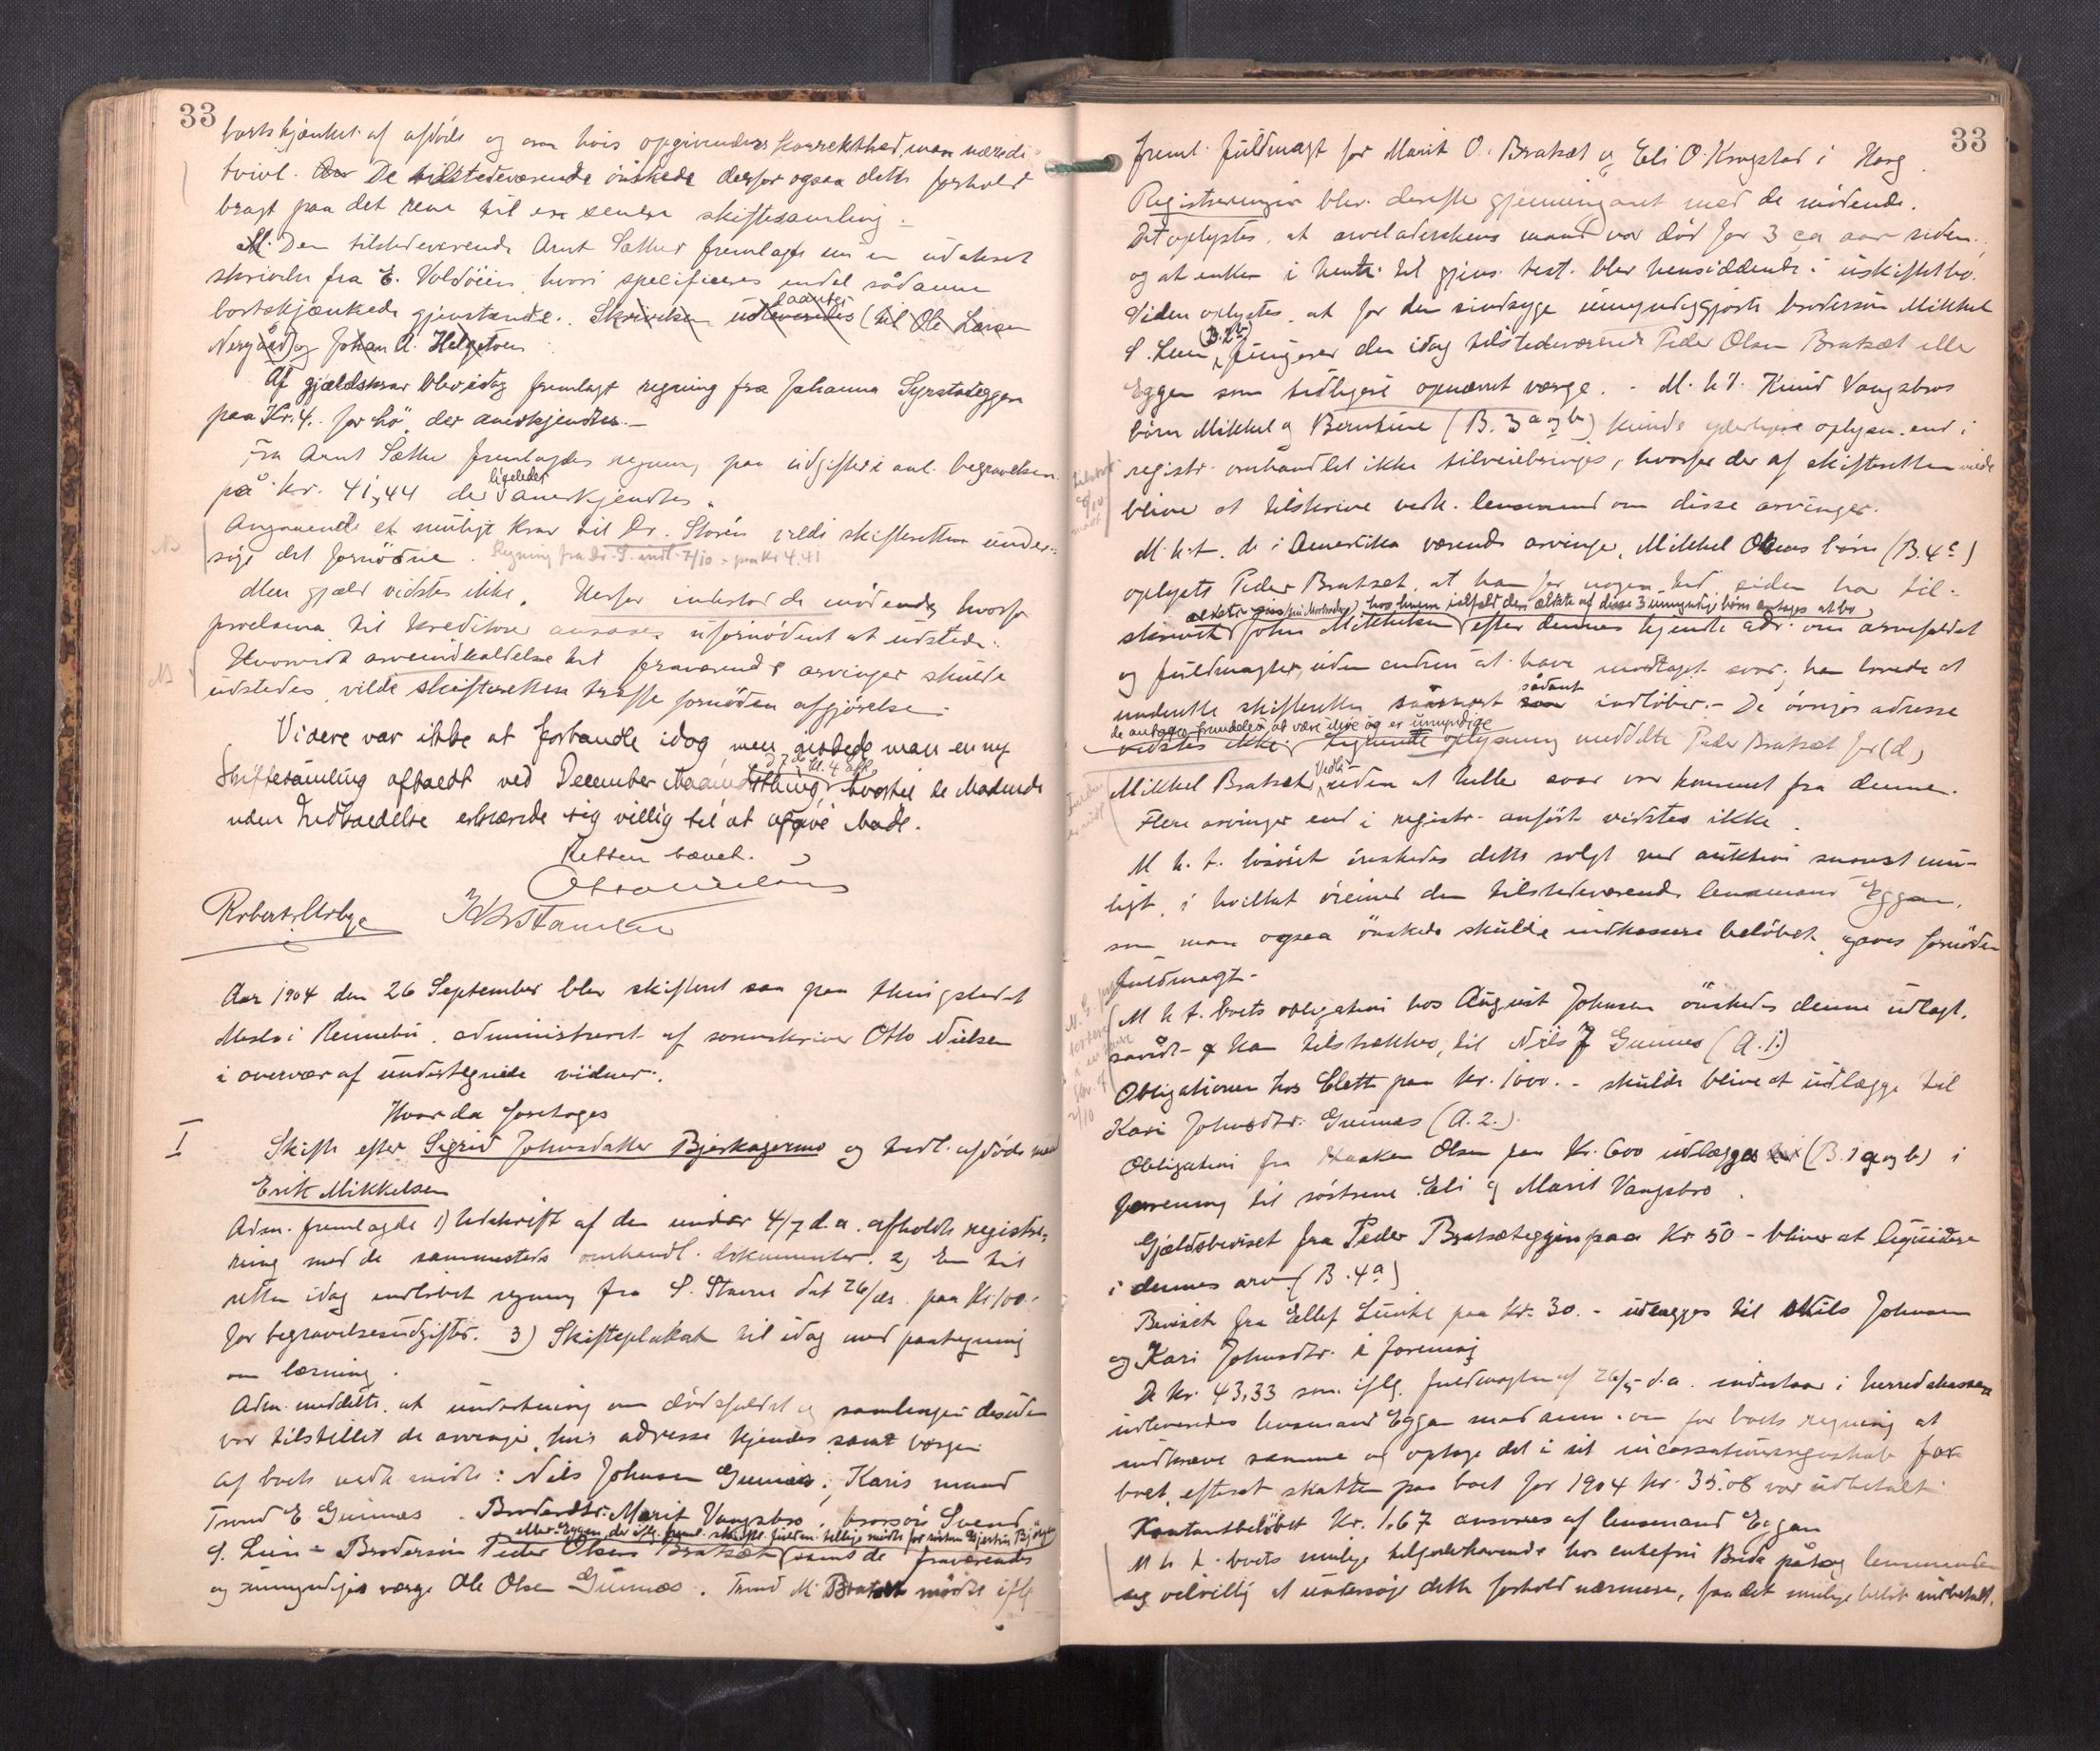 33
bortskjænket af afdøde og om hvis opgivenders korrekthed man nærede
tvivl. De tilstedeværende önskede derfor ogsaa dette forhold
bragt paa det rene til en senere skiftesamling.
Den tilstedeværende Arnt Sætter fremlagde nu en udateret
skrivelse fra E. Voldöien hvori specificeres endel sådanne
bortskjænkede gjenstande. Skrivelsen udleveredes (til Ole Larsen
Nergård) og Johan A. Helgetveen
Af gjældskrav blev idag fremlagt regning fra Johanna Syrstadeggen
paa Kr. 4. for hö, der anerkjendtes.-
Fra Arnt Sætter fremlagdes regning paa udgifter i anl. begravelsen
på kr. 41,44 der ligeledes anerkjendtes.
Angaaende et muligt krav til Dr. Storén vilde skifteretten under-
söge det fornödne. Regning fra Dr. S. indl. 7/10 - paa Kr 4.41
Mere gjæld vidstes ikke. Herfor indestod de mödende, hvorfor
proclama til kreditorer ansaaes ufornödent at udstede.
NB
Hvorvidt arveindkaldelse til fraværende arvinger skulde
udstedes, vilde skifteretten træffe fornöden afgjörelse.
NB
Videre var ikke at forhandle idag, men gustede man en ny
Skiftesamling afholdt ved December Maanedsthing, d 7 de kl. 4 efm. hvortil de Mødende
uden Indkaldelse erklærede sig villig til at afgive Møde.
Retten hævet.
Otto Nielsen
Robert Uvbye
Aar 1904 den 26 September blev skifteret sat paa thingstedet
Meslo i Rennebu, administreret af sorenskriver Otto Nielsen
i overvær af undertegnede vidner.
Hvor da foretoges
I
Skifte efter Sigrid Johnsdatter Bjerkagermo og tidl. afdöde mand
Erik Mikkelsen
Adm. fremlagde 1) Udskrift af den under 4/7 d.a. afholdte registre-
ring med de sammesteds omhandl. dokumenter. 2) En til
retten idag indlöbet regning fra S. Stavne dat 26/ds. paa Kr. 100.-
for begravelsesudgifter. 3) Skifteplakat til idag med paategning
om læsning.
Adm. meddelte, at underretning om dödsfaldet og samlingen desuden
var tilstillet de arvinge, hvis adresse kjendes samt værgen
Af boets vedk. mödte: Nils Johnsen Gunnes, Karis mand
Trond E Gunnes. Broderdtr. Marit Vangsbro, brorsön Svend
S. Luin - Brodersön Peder Olsen Bratset eller Eggen samt de fraværendes
og umyndiges værge Ole Olsen Gunnes. Trond M. Bratset mödte iflg
33
freml. fuldmagt for Marit O. Bratset og Eli O. Krogstad i Horg.
Registreringen blev derefter gjennemgaaet med de mödende.
Det oplystes, at arveladerskens mand var död for 3 ca aar siden,
og at enken i henh. til gjens. test. blev hensiddende i uskiftet bo.
Videre oplystes at for den sindsyge umyndiggjorte brodersön Mikkel
S. Luin (B.2b) fungerer den idag tilstedeværende Peder Olsen Bratset eller
Eggen som tidligere opnævnt værge. - M.h.t. Knud Vangsbros
börn Mikkel og Berntine (B. 3 a og b) kunde yderligere oplysn. end i
registr. omhandlet ikke tilveiebringes, hvorfor der af skifteretten vilde
blive at tilskrive vedk. lensmand om disse arvinger.
M.h.t. de i Amerika værende arvinge, Mikkel Olsens börn (B.4c)
oplyste Peder Bratset, at han for nogen tid siden har til-
skrevet John Mikkelsen hos hvem ialfald den ældste af disse 3 umyndige börn antages at bo, efter dennes kjendte adr. om arvefaldet
og fuldmagter, uden endnu at have modtaget svar; han lovede at
underrette skifteretten saasnart sådant indlöber. - De övriges adresse
vidstes ikke. de antages fremdeles at være ilive og er umyndige Lignende oplysning meddelte Peder Bratset for (d)
Mikkel Bratset, uden at heller svar var kommet fra denne.
Flere arvinger end i registr. anfört vidstes ikke.
M.h.t. lösöret önskedes dette solgt ved auktion snarest mu-
ligt, i hvilket öiemed den tilstedeværende lensmand Eggen,
som man ogsaa önskede skulde indkassere belöbet, gaves fornöden
fuldmagt.-
M h t. boets obligation hos August Johnsen önskedes denne udlagt,
såvidt den kan tilstrækkes, til Nils J Gunnes (A.1.)
Obligationen hos Slette paa kr. 1000.- skulde blive at udlægge til
Kari Johnsdtr. Gunnes (A.2.)
Obligation fra Haaken Olsen paa Kr. 600 udlægges (B.1 a og b) i
forening til söstrene Eli og Marit Vangsbro.
Gjældsbeviset fra Peder Bratseteggen paa Kr 50 - bliver at liquidere
i dennes arv. (B.4a)
Beviset fra Ellef Lünke paa kr. 30. - udlægges til Nils Johnsen
og Kari Johnsdtr. i forening
De Kr. 43,33 som iflg. fuldmagten af 26/5 d.a. indestaar i herredskassen
udleveredes lensmand Eggen med anm. om for boets regning at
indkræve samme og optage det i sit incassationsregnskab for
boet, efterat skatten paa boet for 1904 kr. 35.08 var udbetalt.
Kontantbelöbet Kr. 1.67 ansvares af lensmand Eggen
M h t. boets mulige tilgodehavende hos enkefru Buda påtog lensmanden
sig velvillig at undersöge dette forhold nærmere, faa det mulige belöb indbetalt.